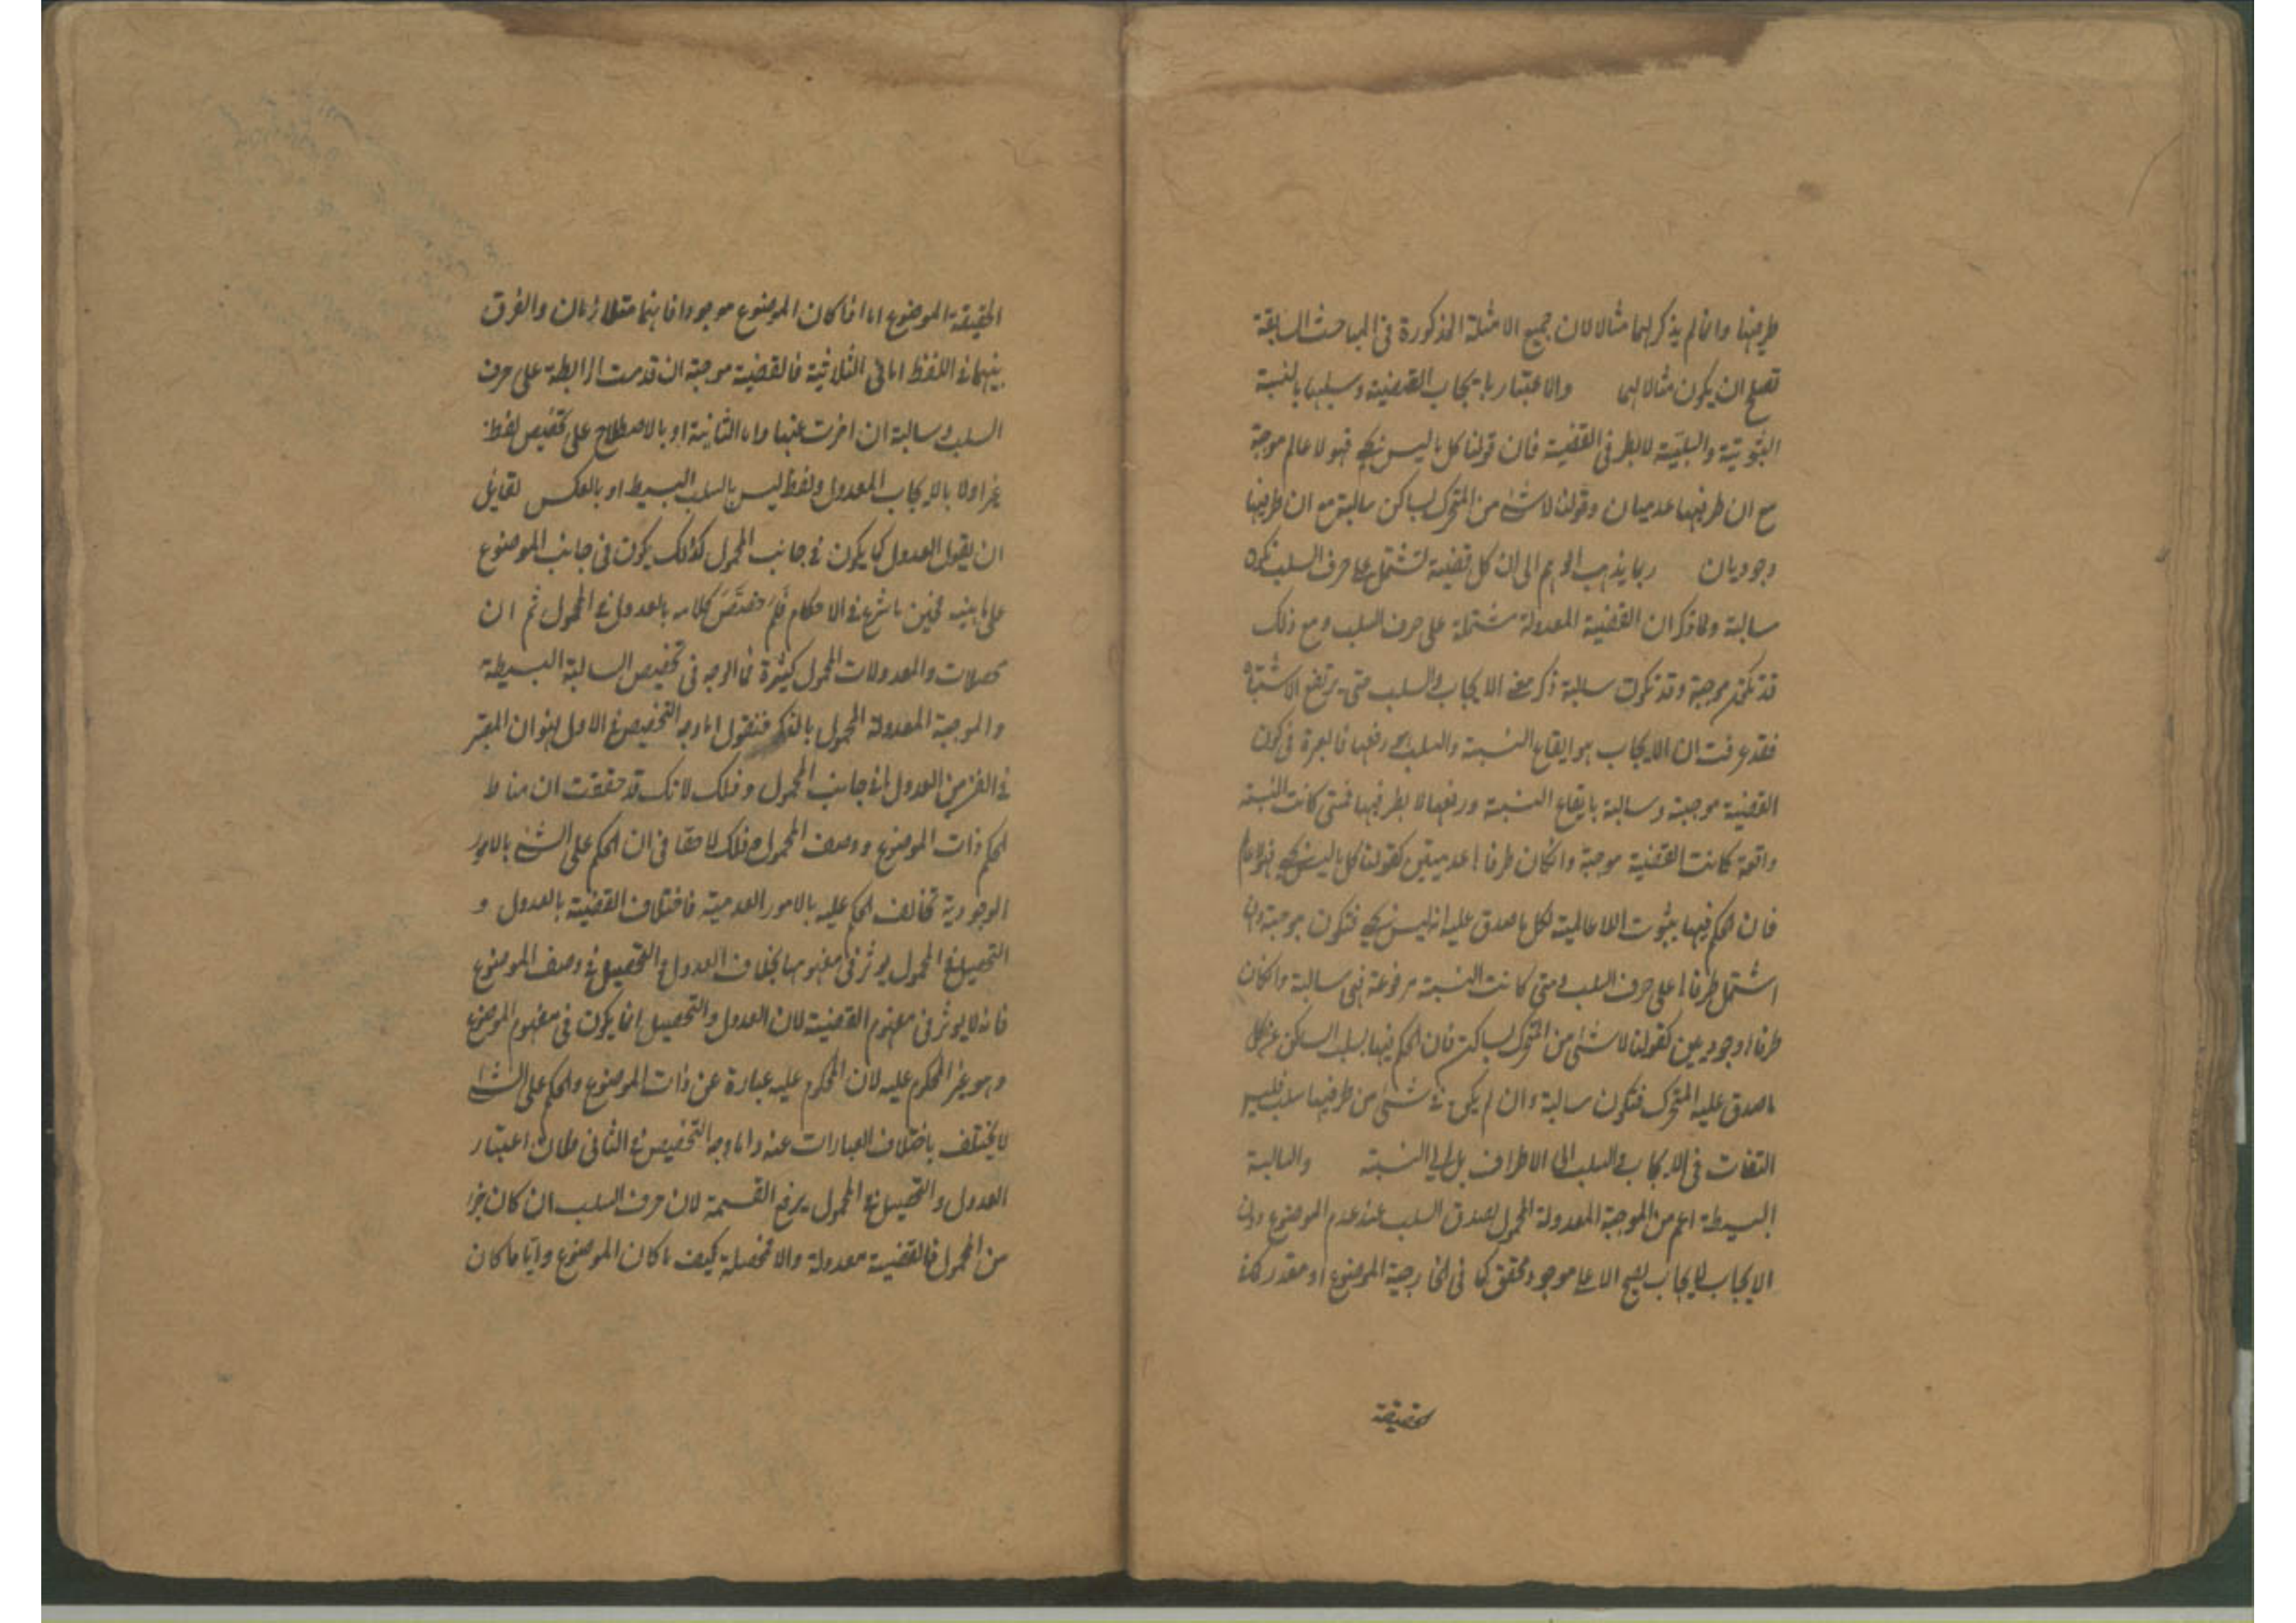 طرفيها وانما لم يذكر لهما مثالا لان جميع الامثلة المذكورة فى المباحث السابقة
تصلح ان يكون مثالا لهما والاعتبار بايجاب القضية وسلبها بالنسبة
الثبوتية والسلبية لا بطرفى القضية فان قولنا كل ما ليس بحى فهو لا عالم موجبة
مع ان طرفيها عدميان وقولنا لا شئ من المتحرك بساكن سالبة مع ان طرفيها
وجوديان ربما يذهب الوهم الى ان كل قضية تشتمل على حرف السلب تكون
سالبة ولما ذكر ان القضية المعدولة مشتملة على حرف السلب ومع ذلك
قد تكون موجبة وقد تكون سالبة ذكر معنى الايجاب والسلب حتى يرتفع الاشتباه
فقد عرفت ان الايجاب هو ايقاع النسبة والسلب هو رفعها فالعبرة فى كون
القضية موجبة وسالبة بايقاع النسبة ورفعها لا بطرفيها فمتى كانت النسبة
واقعة كانت القضية موجبة وان كان طرفاها عدميتين كقولنا كل ما ليس بحى فهو لا عالم
فان الحكم فيها بثبوت اللاعالمية لكل ما صدق عليه انه ليس بحى فتكون موجبة وان
اشتمل طرفاها على حرف السلب ومتى كانت النسبة مرفوعة فهى سالبة وان كان
طرفاها وجوديين كقولنا لا شئ من المتحرك بساكن فان الحكم فيها بسلب الساكن عن كل
ما صدق عليه المتحرك فتكون سالبة وان لم يكن فى شئ من طرفيها سلب فليس
التفات فى الايجاب والسلب الى الاطراف بل الى النسبة والسالبة
البسيطة اعم من الموجبة المعدولة المحمول لصدق السلب عند عدم الموضوع دون
الايجاب فالايجاب لا يصح الا على موجود محقق كما فى الخارجية الموضوع او مقدر كما فى
الحقيقة
الحقيقة الموضوع اما اذا كان الموضوع موجودا فانهما متلازمان والفرق
بينهما فى اللفظ اما فى الثلاثية فالقضية موجبة ان قدمت الرابطة على حرف
السلب وسالبة ان اخرت عنها واما الثانية او بالاصطلاح على تخصيص لفظ
غير اولا بالايجاب المعدول ولفظ ليس بالسلب البسيط او بالعكس لقائل
ان يقول العدول كما يكون فى جانب المحمول كذلك يكون فى جانب الموضوع
على ما بينه فحين ما شرع فى الاحكام فلم خصص كلامه بالعدول فى المحمول ثم ان
محصلات والمعدولات المحمول كثيرة فما الوجه فى تخصيص السالبة البسيطة
والموجبة المعدولة المحمول بالذكر فنقول اما وجه التخصيص فى الاول فهو ان المعتبر
فى الفن من العدول ما فى جانب المحمول وذلك لانك قد حققت ان مناط
الحكم ذات الموضوع ووصف المحمول وذلك لا خفا فى ان الحكم على الشئ بالامور
الوجودية تخالف الحكم عليه بالامور العدمية فاختلاف القضية بالعدول و
التحصيل فى المحمول يوثر فى مفهومها بخلاف العدول والتحصيل فى وصف الموضوع
فانه لا يوثر فى مفهوم القضية لان العدول والتحصيل انما يكون فى مفهوم الموضوع
وهو غير المحكوم عليه لان المحكوم عليه عبارة عن ذات الموضوع والحكم على الشئ
لا يختلف باختلاف العبارات عنه واما وجه التخصيص فى الثانى فلان اعتبار
العدول والتحصيل فى المحمول يربع القسمة لان حرف السلب ان كان جزءا
من المحمول فالقضية معدولة والا محصلة كيف ما كان الموضوع وايا ما كان